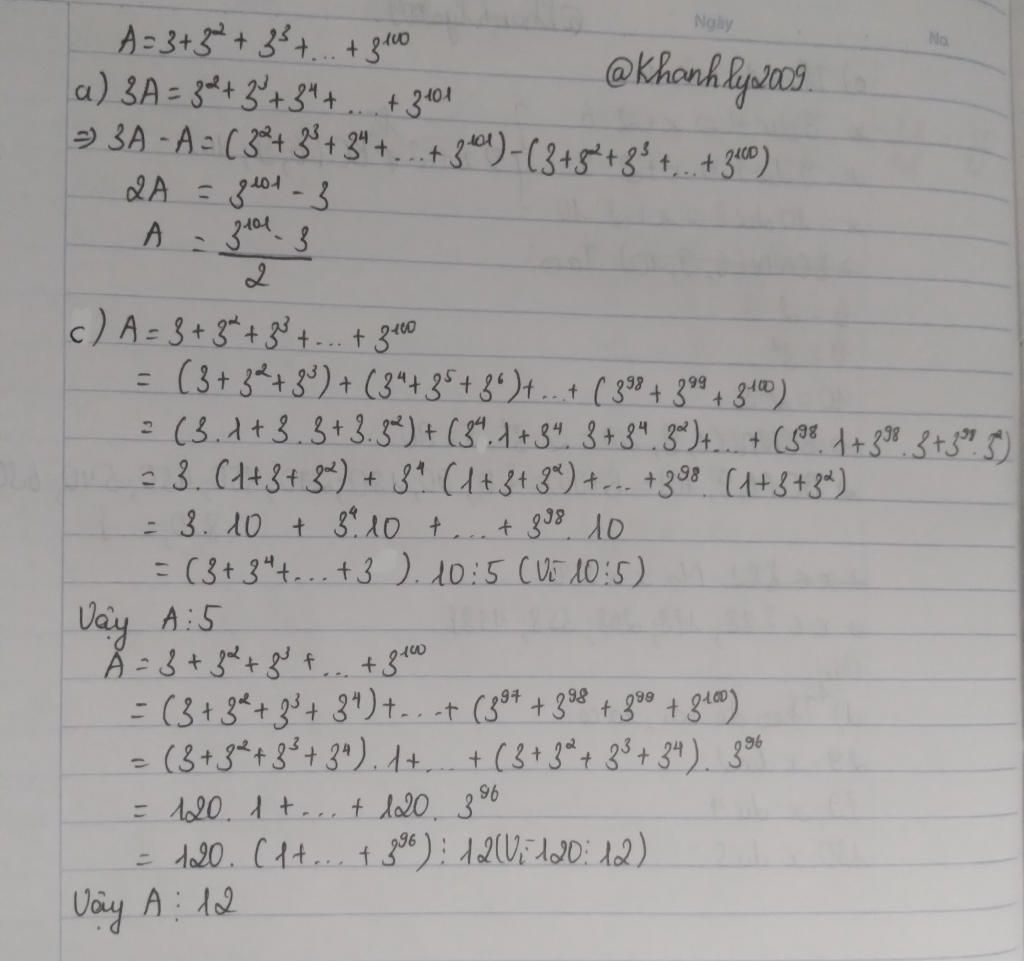 Ngày
No.
A = 3 + 3² + 3³ + ... + 3¹⁰⁰
@Khanhly2009.
a) 3A = 3² + 3³ + 3⁴ + ... + 3¹⁰¹
⇒ 3A - A = (3² + 3³ + 3⁴ + ... + 3¹⁰¹) - (3 + 3² + 3³ + ... + 3¹⁰⁰)
2A = 3¹⁰¹ - 3
A = 3¹⁰¹ - 3
2
c) A = 3 + 3² + 3³ + ... + 3¹⁰⁰
= (3 + 3² + 3³) + (3⁴ + 3⁵ + 3⁶) + ... + (3⁹⁸ + 3⁹⁹ + 3¹⁰⁰)
= (3.1 + 3.3 + 3.3²) + (3⁴.1 + 3⁴.3 + 3⁴.3²) + ... + (3⁹⁸.1 + 3⁹⁸.3 + 3⁹⁸.3²)
= 3. (1+3+3²) + 3⁴. (1+3+3²) + ... + 3⁹⁸. (1+3+3²)
= 3. 10 + 3⁴.10 + ... + 3⁹⁸. 10
= (3 + 3⁴ + ... + 3 ). 10 ⋮ 5 (Vì 10 ⋮ 5)
Vậy A ⋮ 5
A = 3 + 3² + 3³ + ... + 3¹⁰⁰
= (3 + 3² + 3³ + 3⁴) + ... + (3⁹⁷ + 3⁹⁸ + 3⁹⁹ + 3¹⁰⁰)
= (3 + 3² + 3³ + 3⁴). 1 + ... + (3 + 3² + 3³ + 3⁴). 3⁹⁶
= 120. 1 + ... + 120. 3⁹⁶
= 120. (1 + ... + 3⁹⁶) ⋮ 12 (Vì 120 ⋮ 12)
Vậy A ⋮ 12